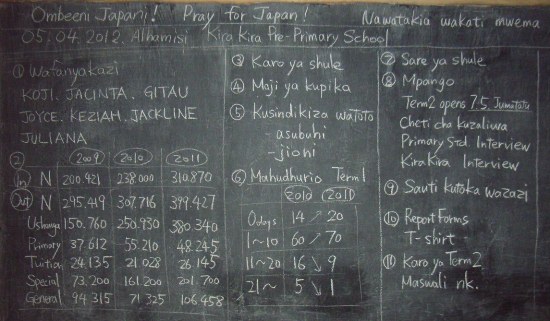 Ombeeni Japani! Pray for Japan! Nawatakia wakati mwema
05.04.2012. Alhamisi Kira Kira Pre-Primary School
① Wafanyakazi
KOJI. JACINTA. GITAU
JOYCE. KEZIAH. JACKLINE
JULIANA
② 2009 2010 2011
In N 200.421 238.000 310.870
Out N 295.449 307.716 399.427
150.760 250.930 380.340
Primary 37.612 55.210 48.245
Tuition 24.135 21.028 26.145
Special 73.200 161.200 201.700
General 94.315 71.325 106.458
③ Karo ya shule
④ Maji ya kupika
⑤ Kusindikiza watoto
- asubuhi
- jioni
⑥ Mahudhurio Term 1
2010 2011
0days 14 ↗ 20
1~10 60 ↗ 70
11~20 16 ↘ 9
21~ 5 ↘ 1
⑦ Sare ya shule
⑧ Mpango
Term2 opens 7.5. Jumatatu
Cheti cha kuzaliwa
Primary Std Interview
Kira Kira Interview
⑨ Sauti kutoka wazazi
⑩ Report Forms
T-shirt
⑪ Karo ya Term2
Maswali nk.